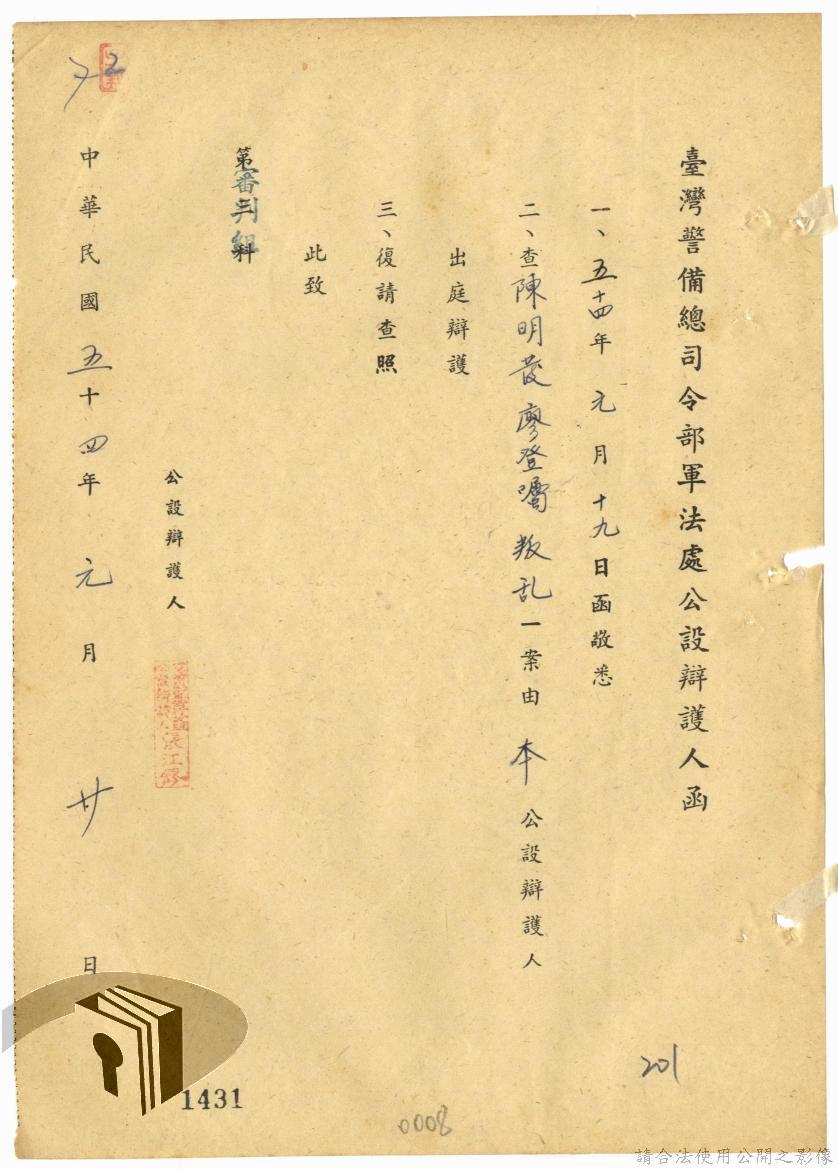 臺灣警備總司令部軍法處公設辯護人函
一、五十四年元月十九日函敬悉
二、查陳明發廖登囑叛乱一案由本公設辯護人
出庭辯護
三、復請查照
此致
第 科
審判組
公設辯護人
張江鏐
中華民國五十四年元月廿日
201
1431
0008
請合法使用公開之影像